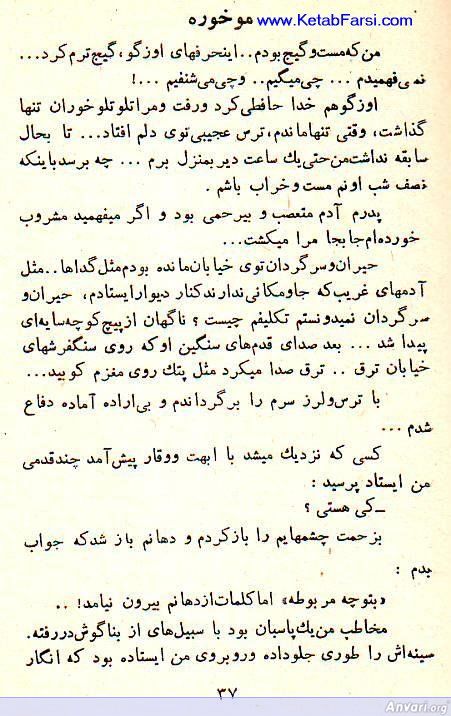 www.KetabFarsi.com موخوره
من که مست و گیج بودم.. اینحرفهای اوزگو، گیج ترم کرد...
نمی فهمیدم ... چی میگیم.. وچی می شنفیم ...!
اوزگوهم خدا حافظی کرد ورفت ومرا تلو تلو خوران تنها
گذاشت، وقتی تنها ماندم، ترس عجیبی توی دلم افتاد... تا بحال
سابقه نداشت من حتی یك ساعت دیر بمنزل برم ... چه برسد باینکه
نصف شب اونم مست و خراب باشم .
پدرم آدم متعصب و بیرحمی بود و اگر میفهمید مشروب
خورده‌ام جا بجا مرا میکشت...
حیران وسر گردان توی خیابان مانده بودم مثل گداها.. مثل
آدمهای غریب که جا ومکانی ندارند کنار دیوار ایستادم، حیران و
سر گردان نمیدونستم تکلیفم چیست ؟ ناگهان از پیچ کوچه سایه‌ای
پیدا شد ... بعد صدای قدم‌های سنگین او که روی سنگفرشهای
خیابان ترق .. ترق صدا میکرد مثل پتك روی مغزم کوبید...
با ترس ولرز سرم را بر گرداندم و بی اراده آماده دفاع
شدم ...
کسی که نزدیك میشد با ابهت ووقار پیش آمد چند قدمی
من ایستاد پرسید :
ـ کی هستی ؟
بزحمت چشمهایم را باز کردم و دهانم باز شد که جواب
بدم :
«بتوچه مر بوطه» اما کلمات از دهانم بیرون نیامد! ..
مخاطب من یك پاسبان بود با سبیل‌های از بنا گوش در رفته.
سینه‌اش را طوری جلو داده وروبروی من ایستاده بود که انگار
۳۷
Anvari.org